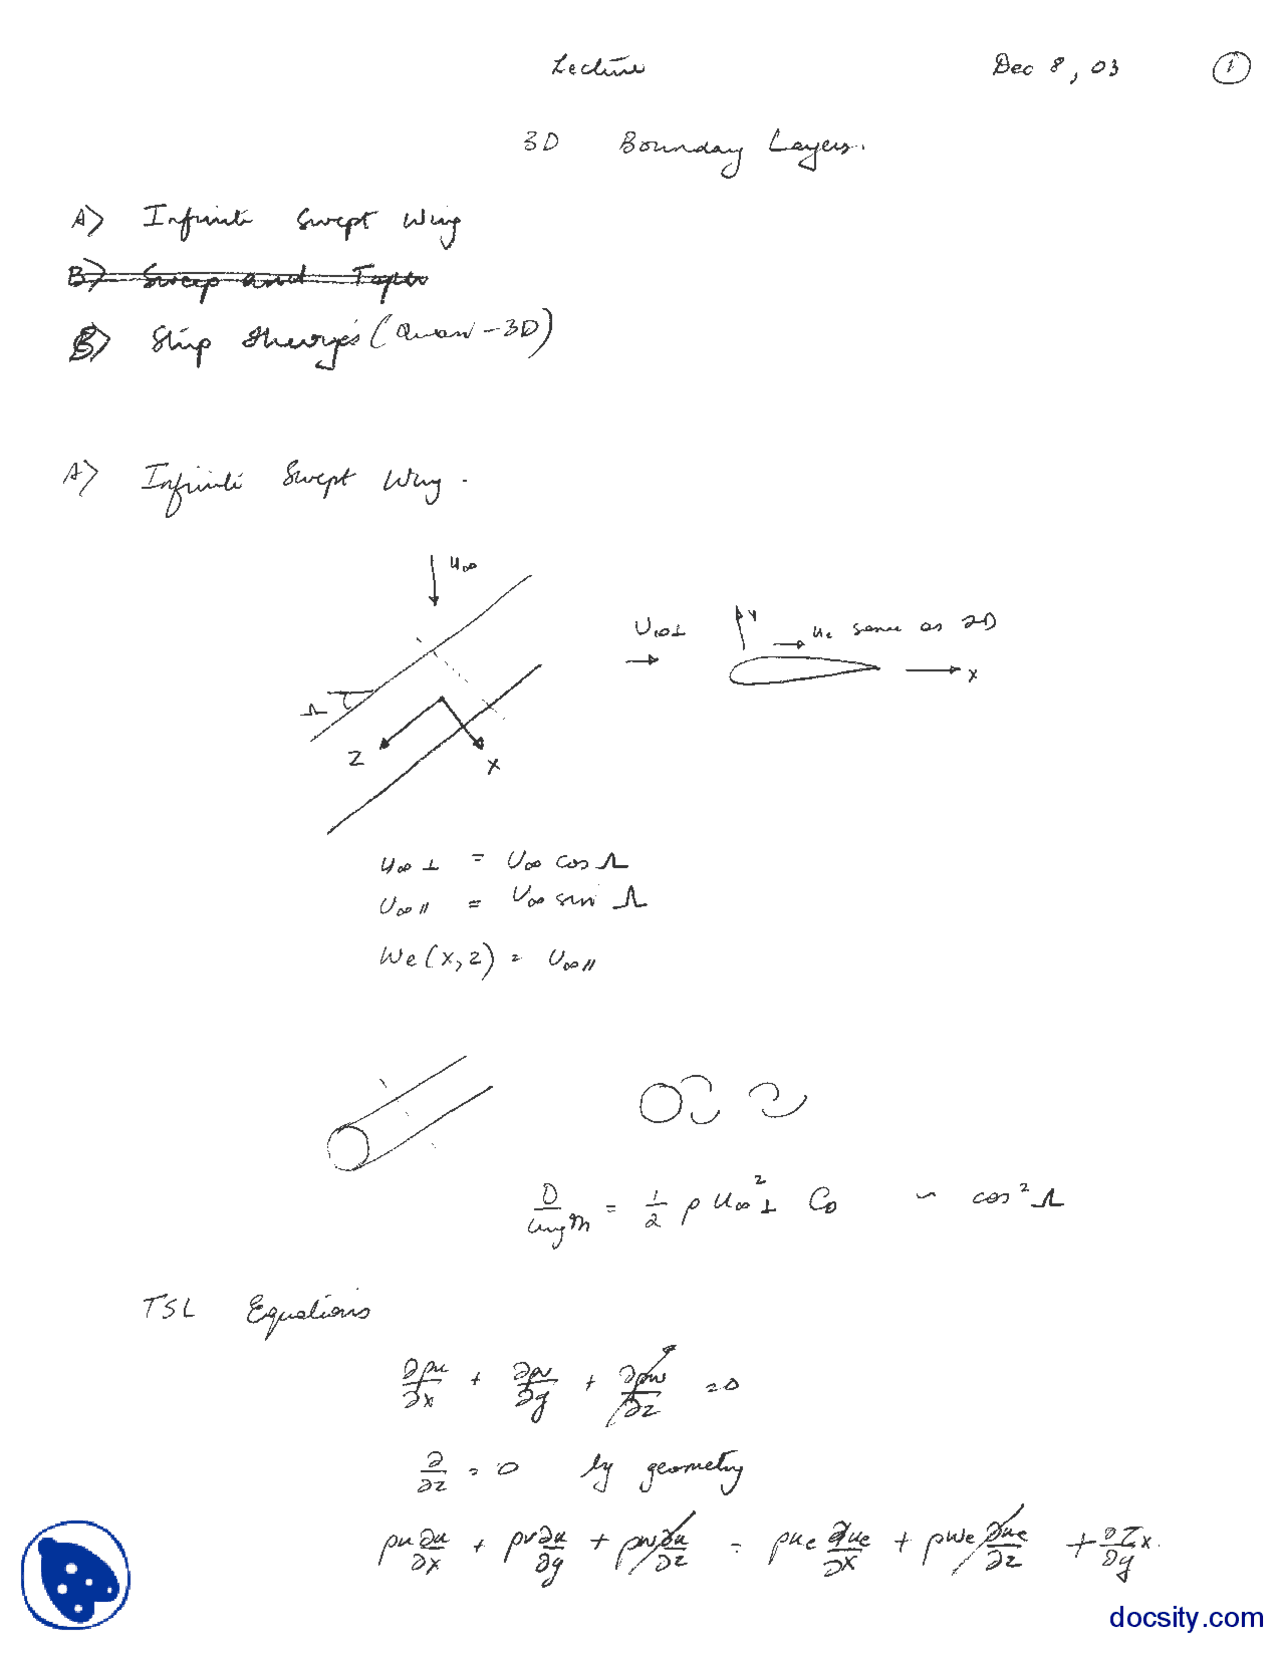 Lecture Dec 8, 03 1
3D Boundary Layers.
A) Infinite Swept Wing
B) Sweep and Taper
B) Strip theory's (Quasi-3D)
A) Infinite Swept Wing.
u∞
U∞⊥ Y ue same as 2D
X
Λ
Z
X
u∞⊥ = U∞ cos Λ
U∞// = U∞ sin Λ
We(x,z) = U∞//
D/length = 1/2 ρ u∞⊥² CD ~ cos² Λ
TSL Equations
∂ρu/∂x + ∂ρv/∂y + ∂ρw/∂z = 0
∂/∂z = 0 by geometry
ρu ∂u/∂x + ρv ∂u/∂y + ρw ∂u/∂z = ρue ∂ue/∂x + ρwe ∂ue/∂z + ∂τx/∂y.
docsity.com